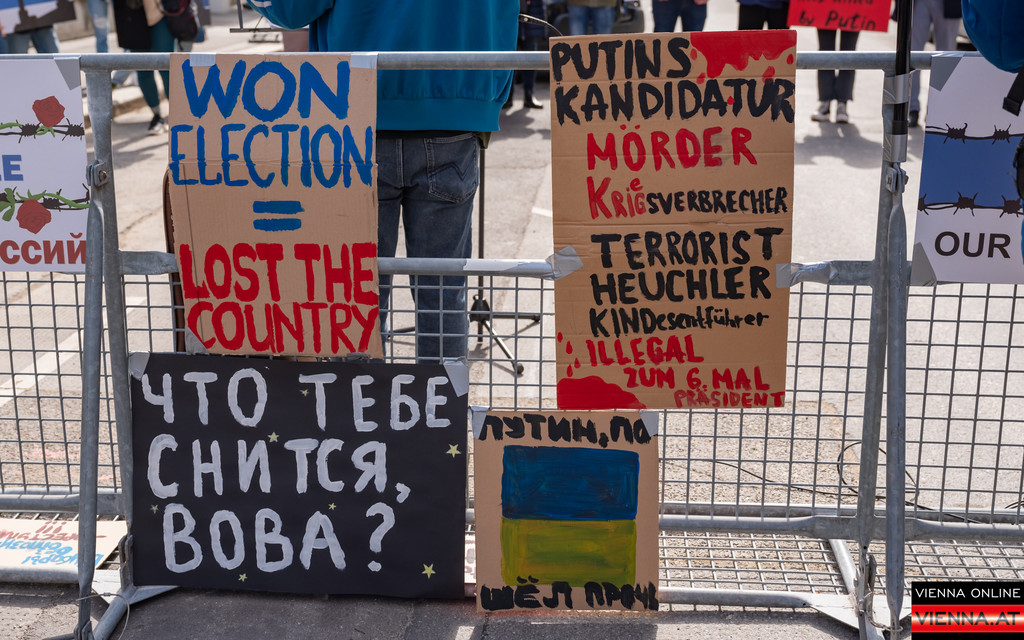 by Putin
WON
ELECTION
=
LOST THE
COUNTRY
PUTINS
KANDIDATUR
MÖRDER
KriegsVERBRECHER
TERRORIST
HEUCHLER
KINDesentführer
ILLEGAL
ZUM 6. MAL
PRÄSIDENT
ЧТО ТЕБЕ
СНИТСЯ,
ВОВА?
ПУТИН, ПА
ШЁЛ ПРОЧЬ
ССИЙ
OUR
VIENNA ONLINE
VIENNA.AT